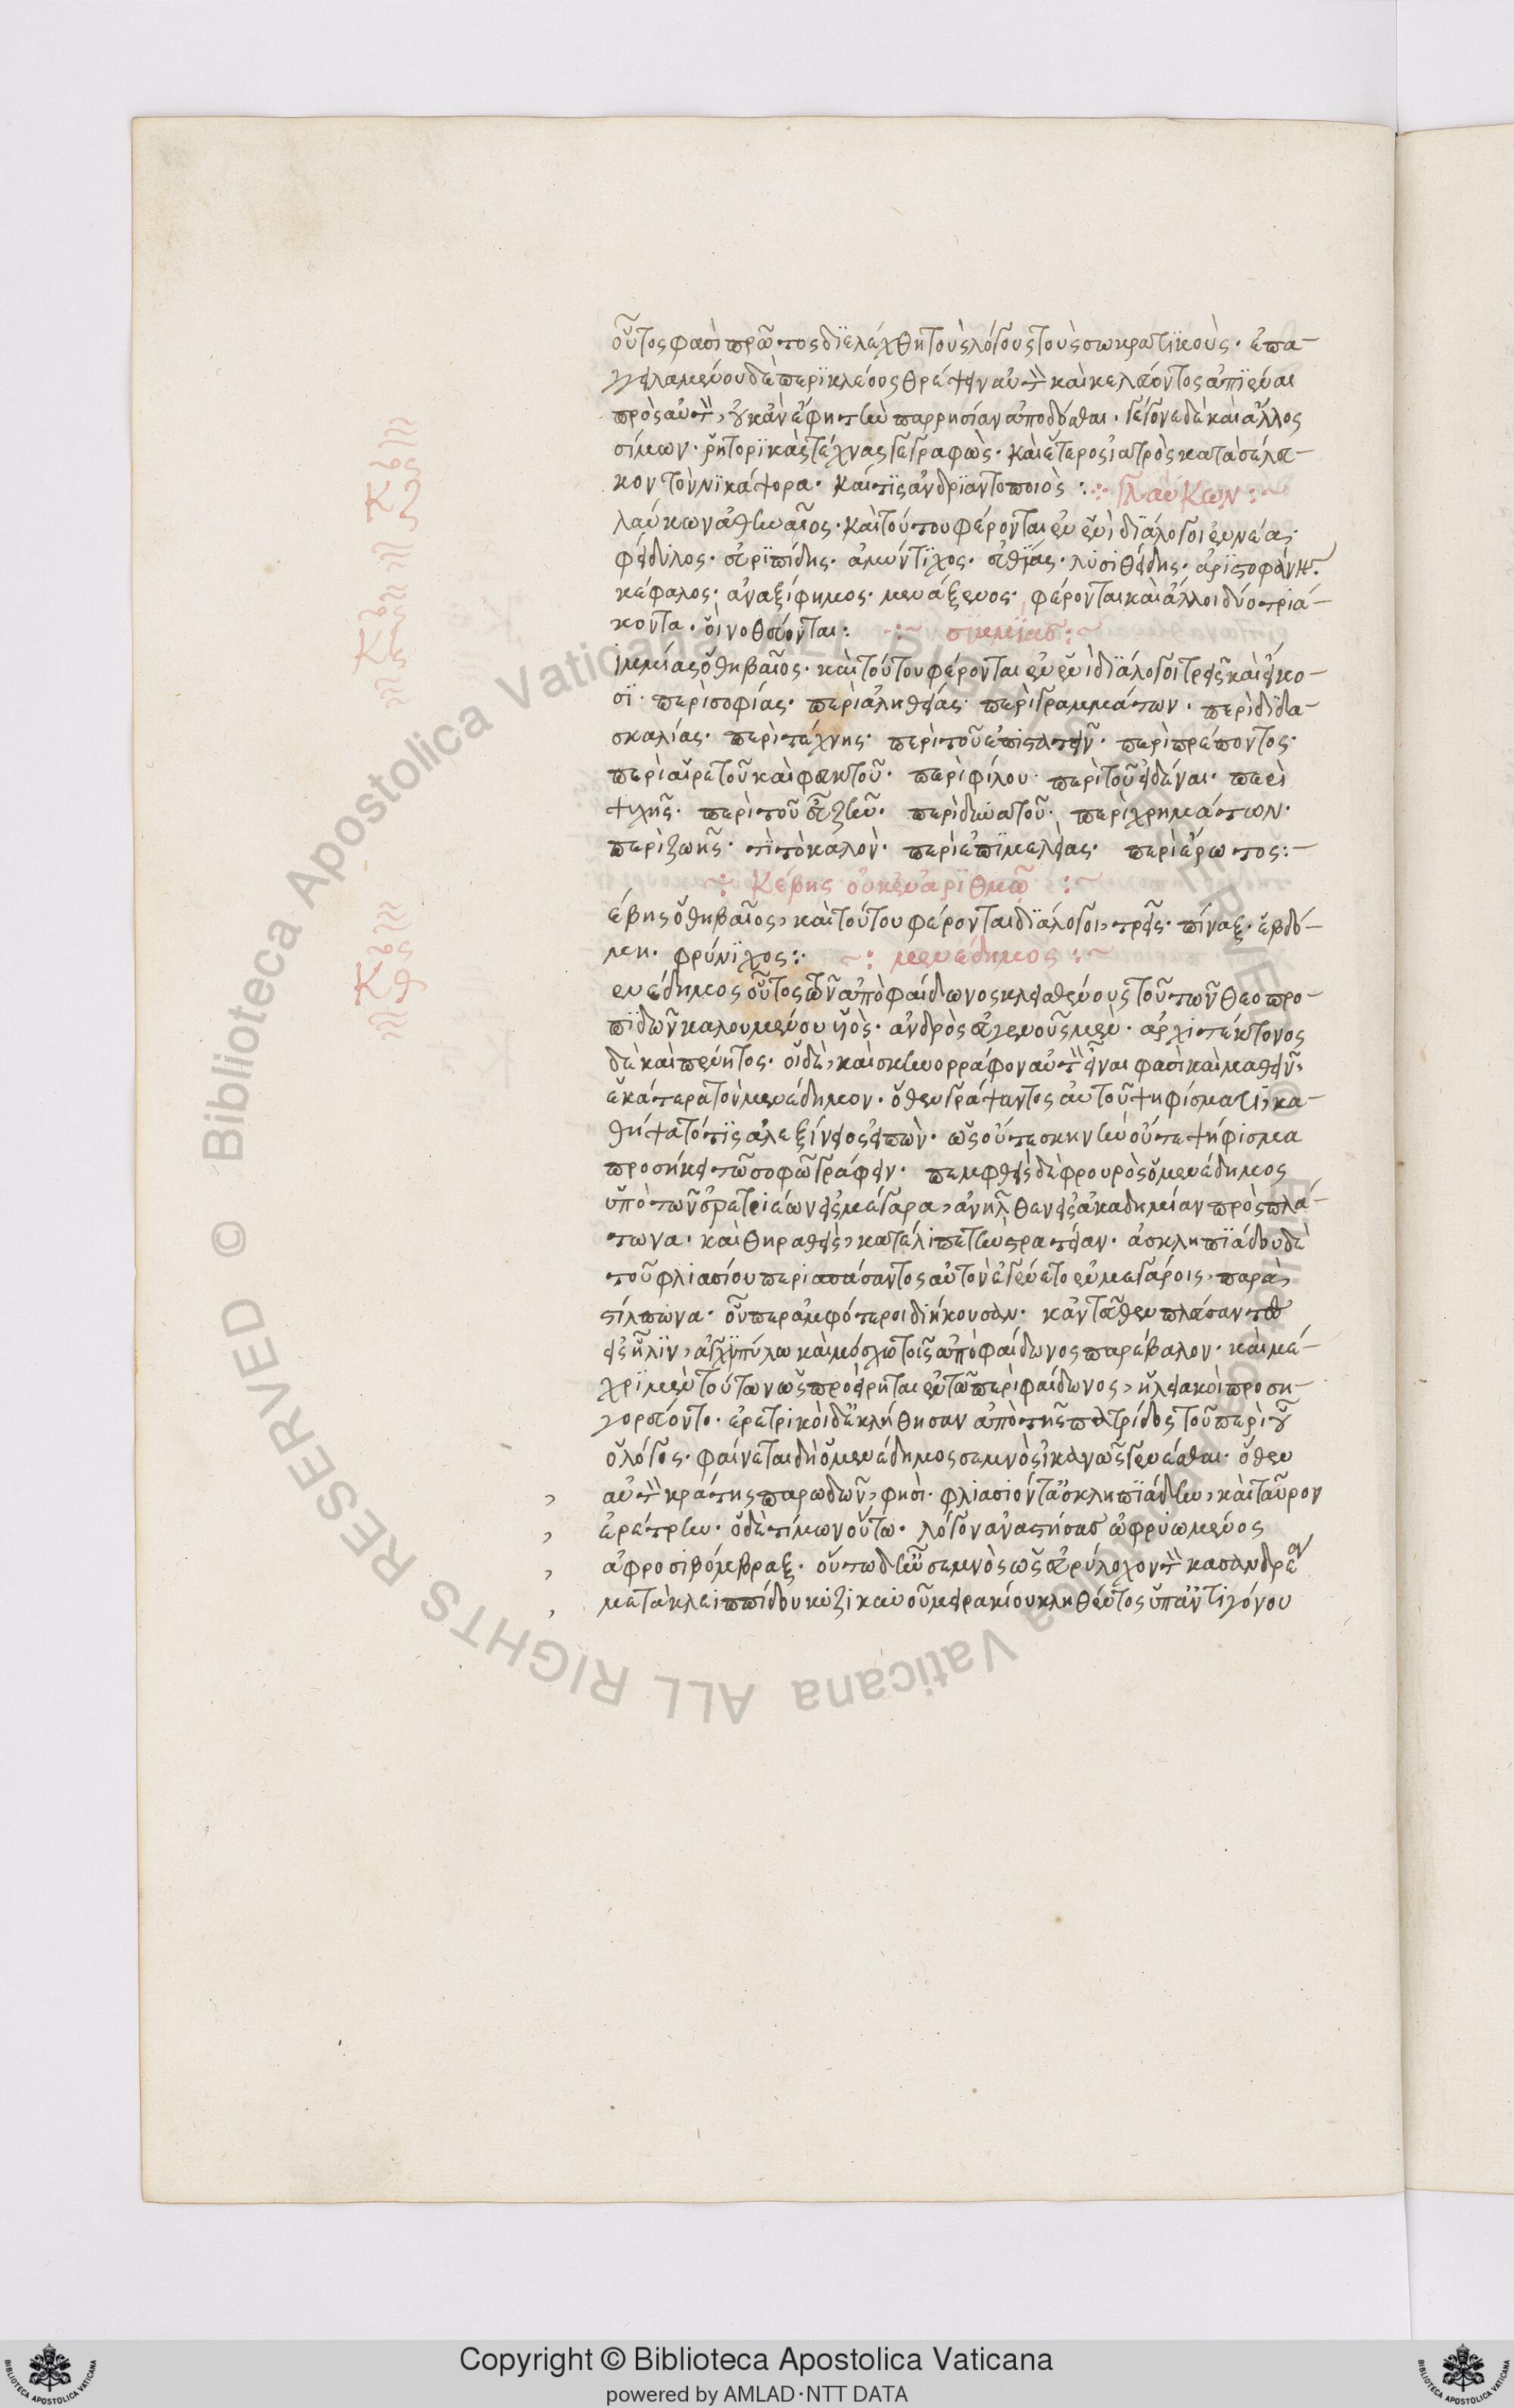 οὗτος φασὶ πρῶτος διελέχθη τοὺς λόγους τοὺς σωκρατικοὺς· ἐπα-
γγειλαμένου δὲ περικλέους θρέψειν αὐτὸν καὶ κελεύοντος ἀπιέναι
πρὸς αὐτὸν, οὐκ ἂν ἔφη τὴν παρρησίαν ἀποδόσθαι· γέγονε δὲ καὶ ἄλλος
σίμων· ῥητορικὰς τέχνας γεγραφὼς· καὶ ἕτερος ἰατρὸς κατὰ σέλευ-
κον τὸν νικάτορα· καί τις ἀνδριαντοποιὸς :
γλαύκων :~
λαύκων ἀθηναῖος· καὶ τούτου φέρονται ἐν ἑνὶ διάλογοι ἐννέα·
φείδυλος· εὐριπίδης· ἀμύντιχος· εὐθίας· λυσιθείδης· ἀριστοφάνης·
κέφαλος· ἀναξίφημος· μενέξενος· φέρονται καὶ ἄλλοι δύο τριά-
κοντα· οἳ νοθεύονται :
σιμμίας :~
ιμμίας ὁ θηβαῖος· καὶ τούτου φέρονται ἐν ἑνὶ διάλογοι τρεῖς καὶ εἴκο-
σι· περὶ σοφίας· περὶ ἀληθείας· περὶ γραμμάτων· περὶ διδα-
σκαλίας· περὶ τέχνης· περὶ τοῦ ἐπιστατεῖν· περὶ πρέποντος·
περὶ αἱρετοῦ καὶ φευκτοῦ· περὶ φίλου· περὶ τοῦ εἰδέναι· περὶ
ψυχῆς· περὶ τοῦ εὖ ζῆν· περὶ δυνατοῦ· περὶ χρημάτων·
περὶ ζωῆς· τί τὸ καλὸν· περὶ ἐπιμελείας· περὶ ἔρωτος :-
Κέβης οὐκ ἐν ἀριθμῶ :~
έβης ὁ θηβαῖος, καὶ τούτου φέρονται διάλογοι, τρεῖς· πίναξ· ἑβδό-
μη· φρύνιχος :·
~: μενέδημος :~
ενέδημος οὗτος τῶν ἀπὸ φαίδωνος κλεισθένους τοῦ τῶν θεοπρο-
πιδῶν καλουμένου υἱὸς· ἀνδρὸς εὐγενοῦς μὲν· ἀρχιτέκτονος
δὲ καὶ πένητος· οἱ δὲ, καὶ σκηνορράφον αὐτὸν εἶναι φασὶ καὶ μαθεῖν·
ἑκάτερα τὸν μενέδημον· ὅθεν γράψαντος αὐτοῦ ψηφίσματι, κα-
θήψατό τις ἀλεξίνειος εἰπὼν· ὡς οὔτε σκηνὴν οὔτε ψήφισμα
προσήκει τῶ σοφῶ γράφειν· πεμφθεὶς δὲ φρουρὸς ὁ μενέδημος
ὑπὸ τῶν ἐρετριέων εἰς μέγαρα, ἀνῆλθεν εἰς ἀκαδημίαν πρὸς πλά-
τωνα· καὶ θηραθεὶς, κατέλιπε τὴν στρατείαν· ἀσκληπιάδου δὲ
τοῦ φλιασίου περισπάσαντος αὐτὸν ἐγένετο ἐν μεγάροις, παρὰ
στίλπωνα· οὗπερ ἀμφότεροι διήκουσαν· κἀντεῦθεν πλεύσαντες
εἰς ἦλιν, ἀγχιπύλω καὶ μόσχω τοῖς ἀπὸ φαίδωνος παρέβαλον· καὶ μέ-
χρι μὲν τούτων ὡς προείρηται ἐν τῶ περὶ φαίδωνος, ἠλειακοὶ προση-
γορεύοντο· ἐρετρικοὶ δ᾽ ἐκλήθησαν ἀπὸ τῆς πατρίδος τοῦ περὶ οὗ
ὁ λόγος· φαίνεται δὴ ὁ μενέδημος σεμνὸς ἱκανῶς γενέσθαι· ὅθεν
αὐτὸν κράτης παρωδῶν, φησὶ· φλιάσιόν τ᾽ ἀσκληπιάδην, καὶ ταῦρον
ἐρέτρην· ὁ δὲ τίμων οὕτω· λόγον ἀναστήσας ὠφρυωμένος
ἀφροσιβόμβραξ· οὕτω δ᾽ ἦν σεμνὸς ὡς εὐρύλοχον τὸν κασανδρέα
μετὰ κλειππίδου κυζικηνοῦ μειρακίου κληθέντος ὑπ᾽ ἀντιγόνου
Κϛ
Κζ
Κθ
Biblioteca Apostolica Vaticana ALL RIGHTS RESERVED ©
Copyright © Biblioteca Apostolica Vaticana
powered by AMLAD·NTT DATA
BIBLIOTECA APOSTOLICA VATICANA
BIBLIOTECA APOSTOLICA VATICANA